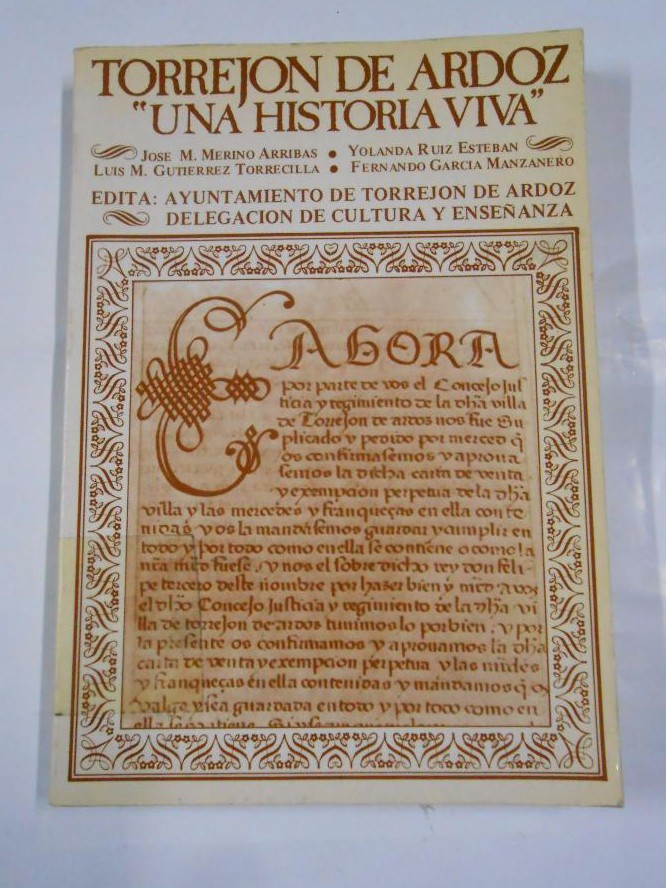 TORREJON DE ARDOZ
"UNA HISTORIA VIVA"
JOSE M. MERINO ARRIBAS • YOLANDA RUIZ ESTEBAN
LUIS M. GUTIERREZ TORRECILLA • FERNANDO GARCIA MANZANERO
EDITA: AYUNTAMIENTO DE TORREJON DE ARDOZ
DELEGACION DE CULTURA Y ENSEÑANZA
E AGORA
por parte de vos el Concejo Jus
ticia y regimiento de la dha villa
de Torrejon de ardoz nos fue Su
plicado y pedido por merced q̃
os confirmasemos y aprova
semos la dicha carta de venta
y exempcion perpetua de la dha
villa y las mercedes y franqueças en ella conte
nidas y os la mandasemos guardar y cumplir en
todo y por todo como en ella se contiene o como la
nr̃a mrd fuese, y nos el sobre dicho rey don feli
pe tercero deste nombre por hazer bien y mrd a vos
el dho Concejo Justicia y regimiento de la dha vi
lla de torrejon de ardos tuvimos lo por bien, y por
la presente os confirmamos y aprovamos la dha
carta de venta y exempcion perpetua y las mrdes
y franqueças en ella contenidas y mandamos q̃ os
valga y sea guardada en todo y por todo como en
ella se